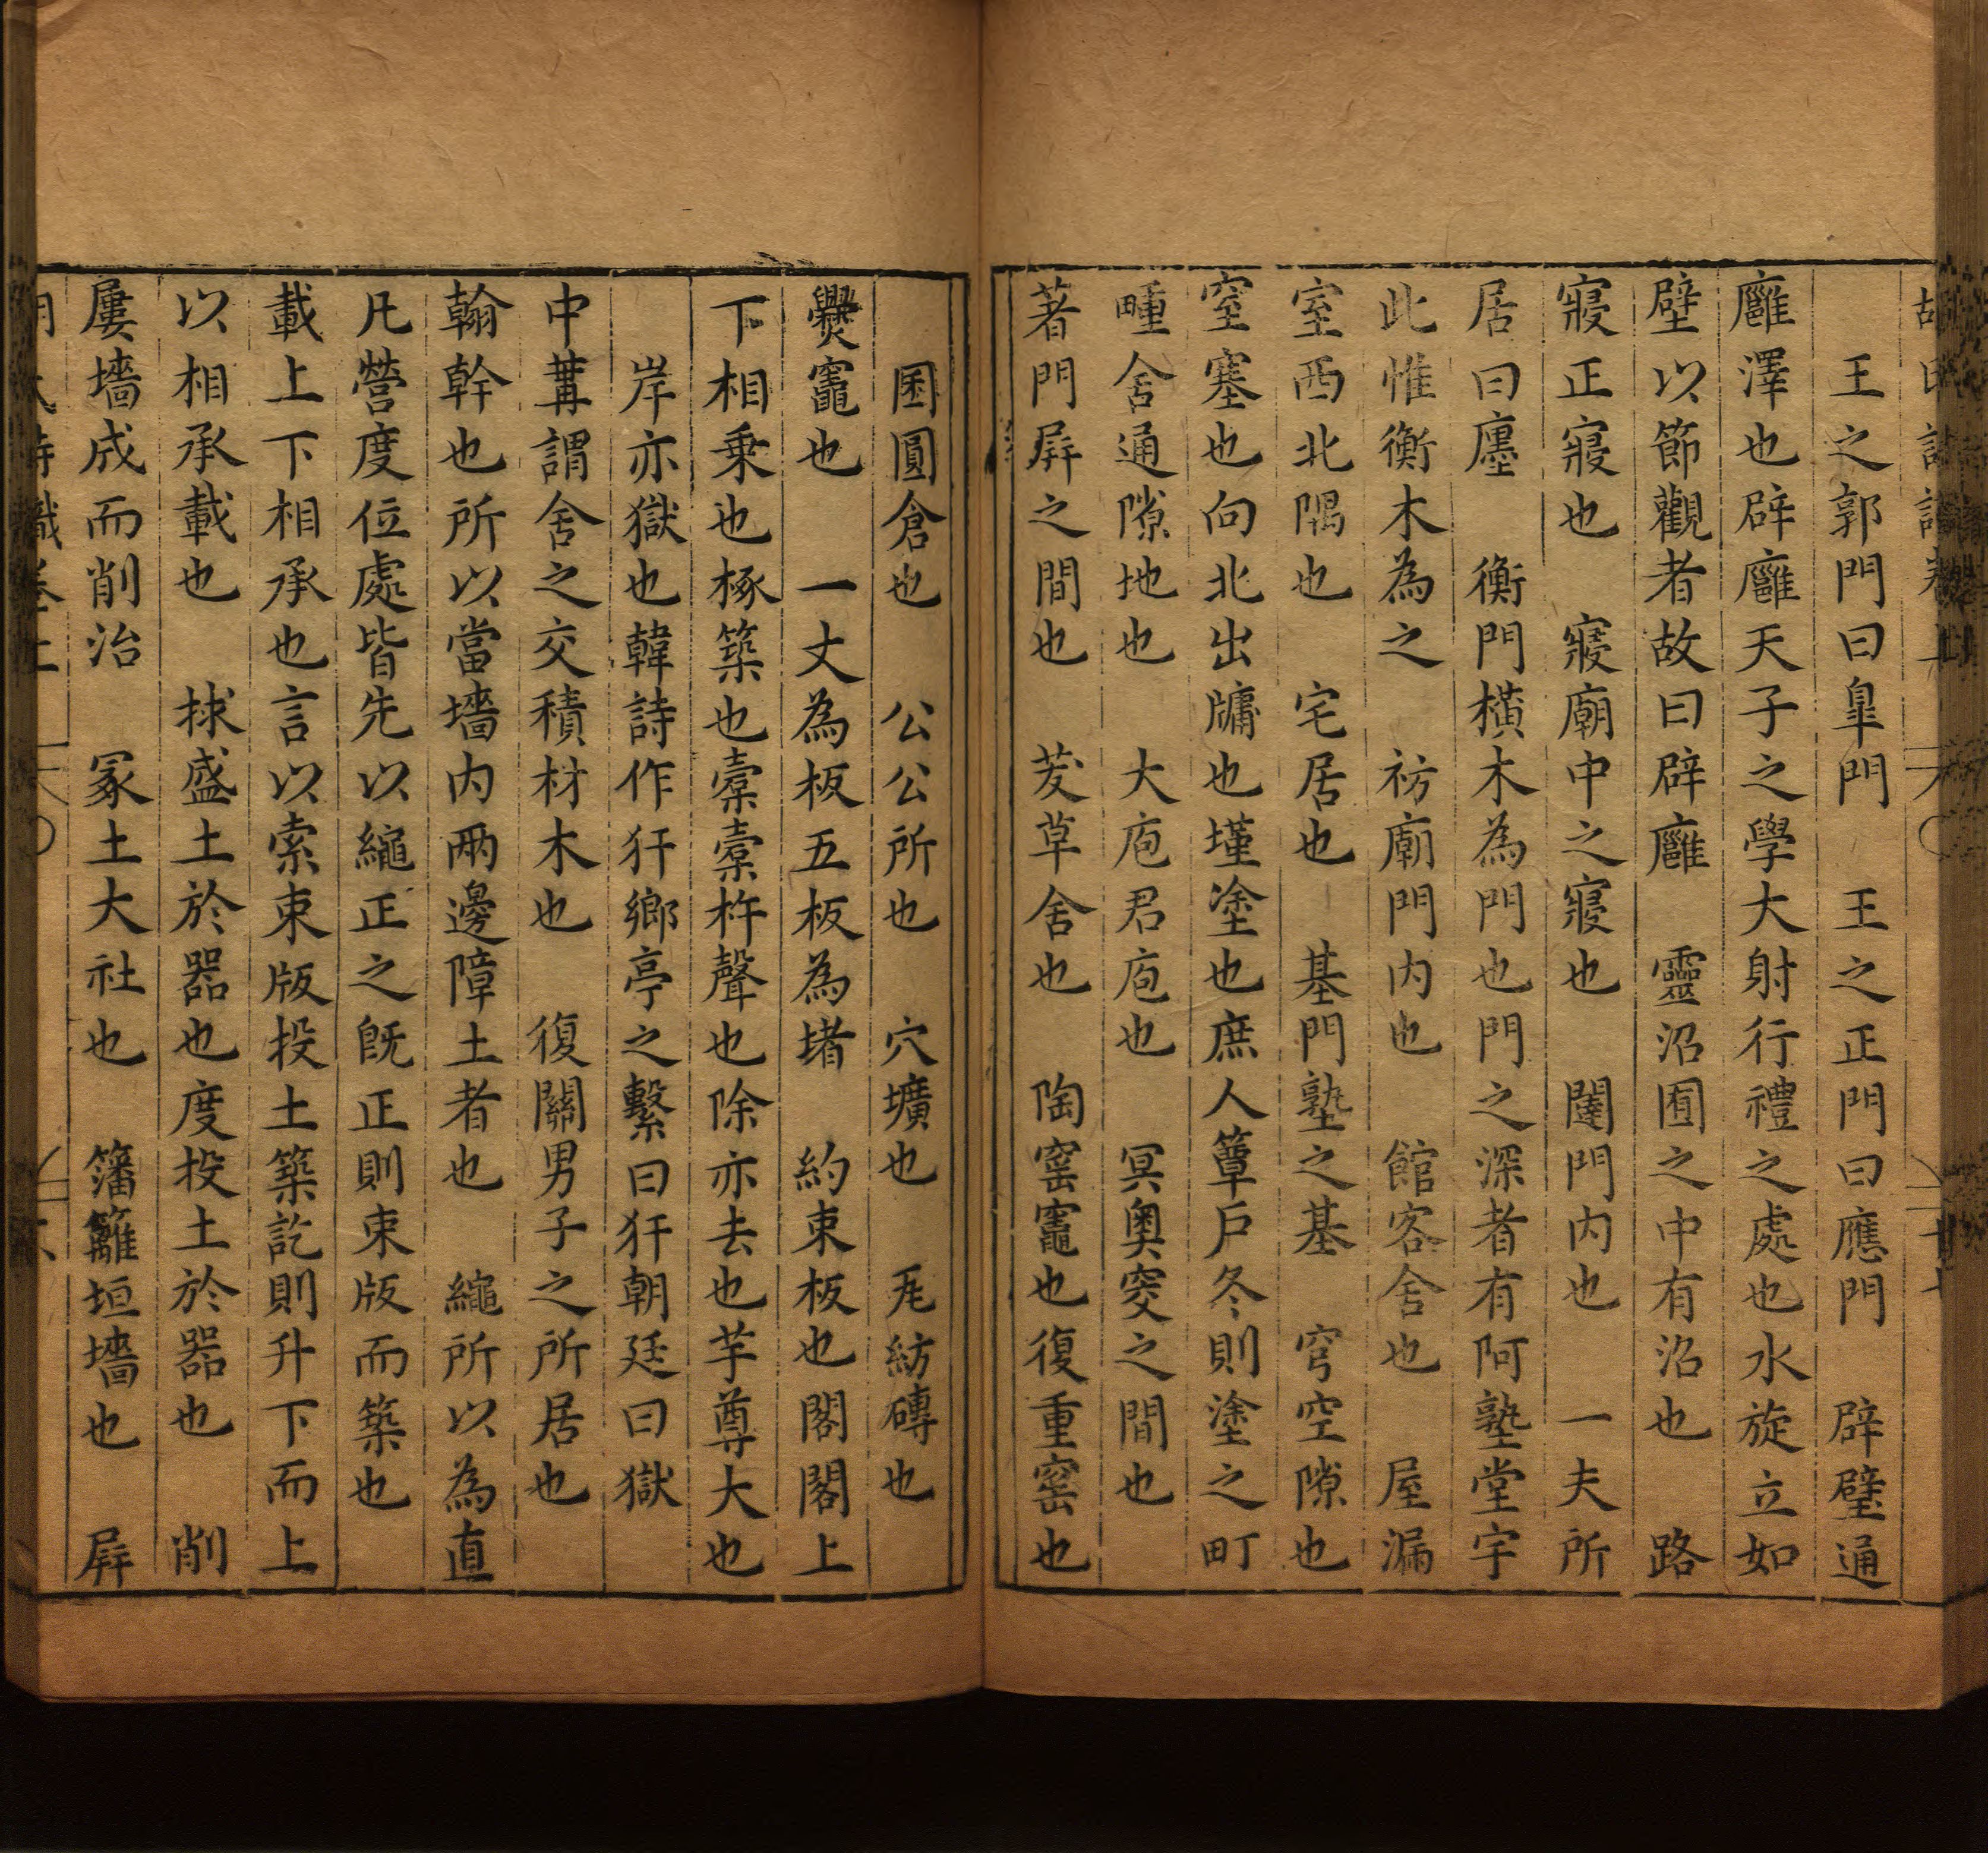 王之郭門曰臯門　王之正門曰應門　辟璧通
廱澤也辟廱天子之學大射行禮之處也水旋立如
壁以節觀者故曰辟廱　靈沼囿之中有沼也　路
寢正寢也　寢廟中之寢也　闥門内也　一夫所
居曰廛　衡門橫木為門也門之深者有阿塾堂宇
此惟衡木為之　祊廟門内也　館客舍也　屋漏
室西北隅也　宅居也　基門塾之基　穹空隙也
窒塞也向北出牖也墐塗也庶人蓽戶冬則塗之町
畽舍通隙地也　大庖君庖也　冥奧窔之間也
著門屏之間也　茇草舍也　陶窑竈也復重窑也
囷圓倉也　公公所也　穴壙也　㼽紡磚也
爨竈也　一丈為板五板為堵　約束板也閣閣上
下相乗也椓築也橐橐杵聲也除亦去也芋尊大也
岸亦獄也韓詩作犴鄉亭之繫曰犴朝廷曰獄
中冓謂舍之交積材木也　復關男子之所居也
翰幹也所以當墻内兩邊障土者也　繩所以為直
凡營度位處皆先以繩正之旣正則束版而築也
載上下相承也言以索束版投土築訖則升下而上
以相承載也　捄盛土於器也度投土於器也　削
屢墻成而削治　冢土大社也　籓籬垣墻也　屏